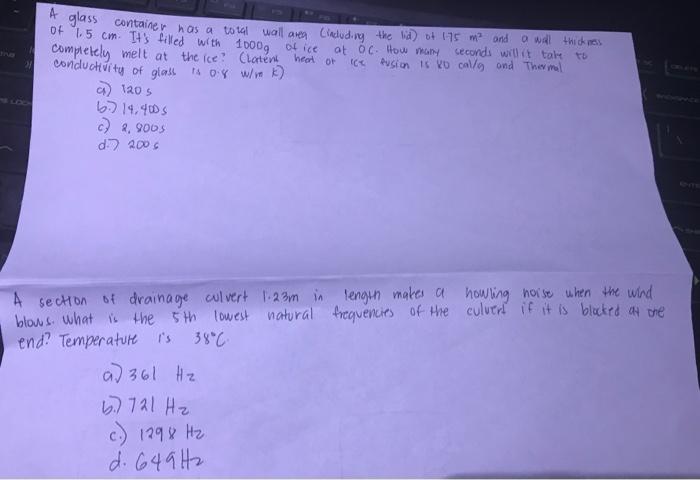 A glass container has a total wall area (including the lid) of 1.75 m² and a wall thickness
of 1.5 cm. It's filled with 1000g of ice at 0C. How many seconds will it take to
completely melt at the ice? (Latent heat of ice fusion is 80 cal/g and Thermal
conductivity of glass is 0.8 w/m K)
a) 120 s
b.) 14,400s
c) 2,800s
d.) 200 s
A section of drainage culvert 1.23m in length makes a howling noise when the wind
blows. What is the 5th lowest natural frequencies of the culvert if it is blocked at one
end? Temperature is 38°C.
a) 361 Hz
b.) 721 Hz
c.) 1298 Hz
d. 649Hz